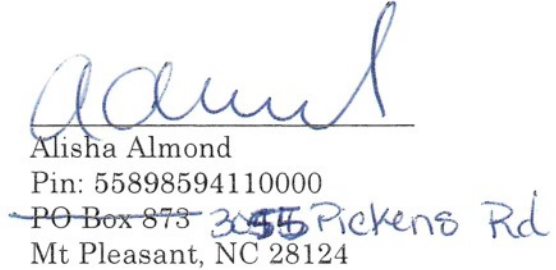 Alisha Almond
Pin: 55898594110000
PO Box 873 3055 Pickens Rd
Mt Pleasant, NC 28124